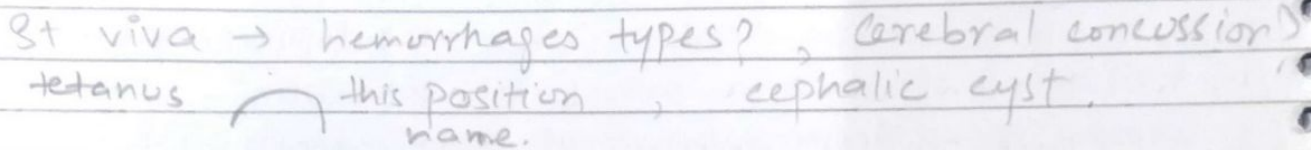 St viva → hemorrhages types?, Cerebral concussion?
tetanus this position, cephalic cyst.
name.